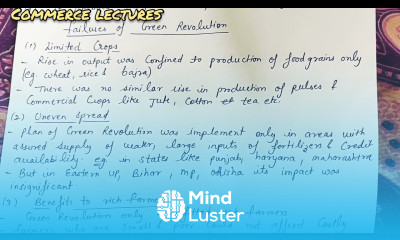 COMMERCE LECTURES
Failures of Green Revolution
(1) Limited Crops
- Rise in output was confined to production of foodgrains only
(eg. wheat, rice & bajra)
- There was no similar rise in production of pulses &
Commercial Crops like Jute, Cotton tea etc.
(2) Uneven Spread
- Plan of Green Revolution was implement only in areas with
assured supply of water, large inputs of fertilizers & Credit
availability. eg. in States like punjab, haryana, maharashtra
- But in Eastern UP, Bihar, MP, odisha its impact was
insignificant
(3) Benefits to rich farmers
- Green Revolution only farmers
Mind
Luster